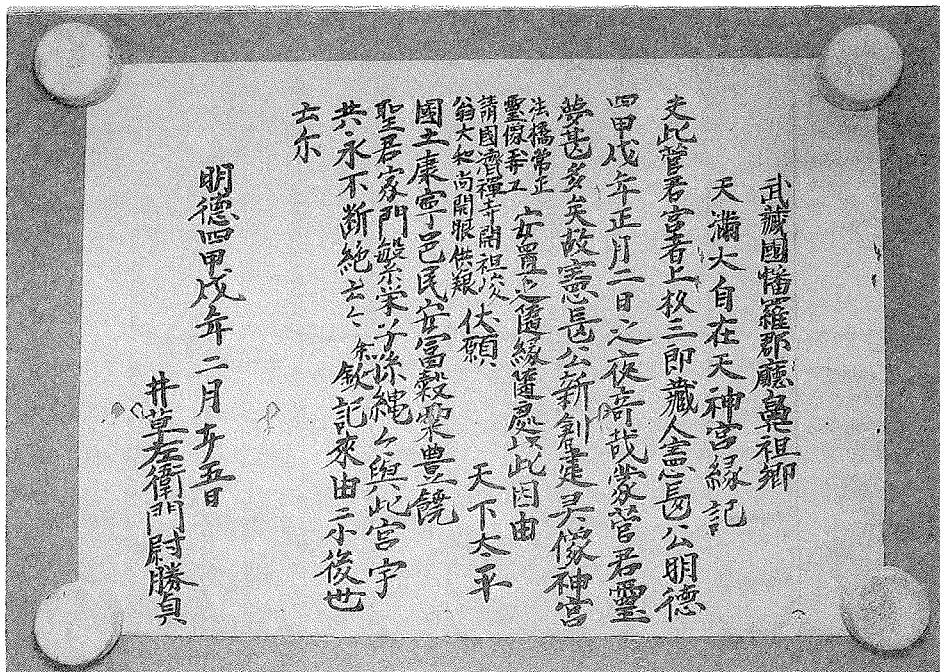 武蔵國幡羅郡廳鼻祖郷
天滿大自在天神宮縁記
夫此菅君宮者上杦三郎藏人憲長公明徳
四甲戌年正月二日之夜奇哉蒙菅君靈
夢甚多矣故憲長公新創建灵像神宮
法橋常正
靈像弄工
安置之随緣随處以此因由
請國濟禪寺開祖峻
翁大和尚開眼供粮
伏願
天下太平
國土康寧邑民安富穀粟豊饒
聖君家門繁栄子孫縄々與此宮宇
共永不断絶云々余欽記來由示後世
云尓
明徳四甲戌年二月廿五日
井草左衛門尉勝貞